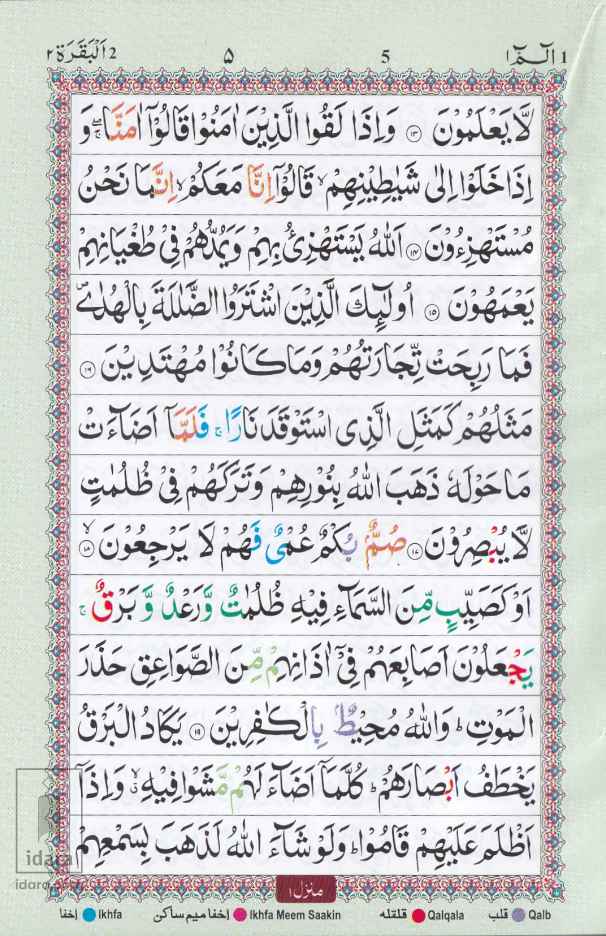 2 اَلْبَقَرَة ٢ ۵ 5 الٓمّٓ ١ 1
لَّا يَعْلَمُوْنَ ﴿١٣﴾ وَاِذَا لَقُوا الَّذِيْنَ اٰمَنُوْا قَالُوْٓا اٰمَنَّا ۖۚ وَ
اِذَا خَلَوْا اِلٰى شَيٰطِيْنِهِمْ ۙ قَالُوْٓا اِنَّا مَعَكُمْ ۙ اِنَّمَا نَحْنُ
مُسْتَهْزِءُوْنَ ﴿١٤﴾ اَللّٰهُ يَسْتَهْزِئُ بِهِمْ وَيَمُدُّهُمْ فِىْ طُغْيَانِهِمْ
يَعْمَهُوْنَ ﴿١٥﴾ اُولٰٓئِكَ الَّذِيْنَ اشْتَرَوُا الضَّلٰلَةَ بِالْهُدٰى ۖ
فَمَا رَبِحَتْ تِّجَارَتُهُمْ وَمَا كَانُوْا مُهْتَدِيْنَ ﴿١٦﴾
مَثَلُهُمْ كَمَثَلِ الَّذِى اسْتَوْقَدَ نَارًا ۚ فَلَمَّآ اَضَآءَتْ
مَا حَوْلَهٗ ذَهَبَ اللّٰهُ بِنُوْرِهِمْ وَتَرَكَهُمْ فِىْ ظُلُمٰتٍ
لَّا يُبْصِرُوْنَ ﴿١٧﴾ صُمٌّۢ بُكْمٌ عُمْىٌ فَهُمْ لَا يَرْجِعُوْنَ ۙ﴿١٨﴾
اَوْ كَصَيِّبٍ مِّنَ السَّمَآءِ فِيْهِ ظُلُمٰتٌ وَّرَعْدٌ وَّبَرْقٌ ۚ
يَجْعَلُوْنَ اَصَابِعَهُمْ فِىْٓ اٰذَانِهِمْ مِّنَ الصَّوَاعِقِ حَذَرَ
الْمَوْتِ ؕ وَاللّٰهُ مُحِيْطٌۢ بِالْكٰفِرِيْنَ ﴿١٩﴾ يَكَادُ الْبَرْقُ
يَخْطَفُ اَبْصَارَهُمْ ؕ كُلَّمَآ اَضَآءَ لَهُمْ مَّشَوْا فِيْهِ ۙ وَاِذَآ
اَظْلَمَ عَلَيْهِمْ قَامُوْا ؕ وَلَوْ شَآءَ اللّٰهُ لَذَهَبَ بِسَمْعِهِمْ
منزل ١
اخفا Ikhfa اخفا میم ساکن Ikhfa Meem Saakin قلقله Qalqala قلب Qalb
idara